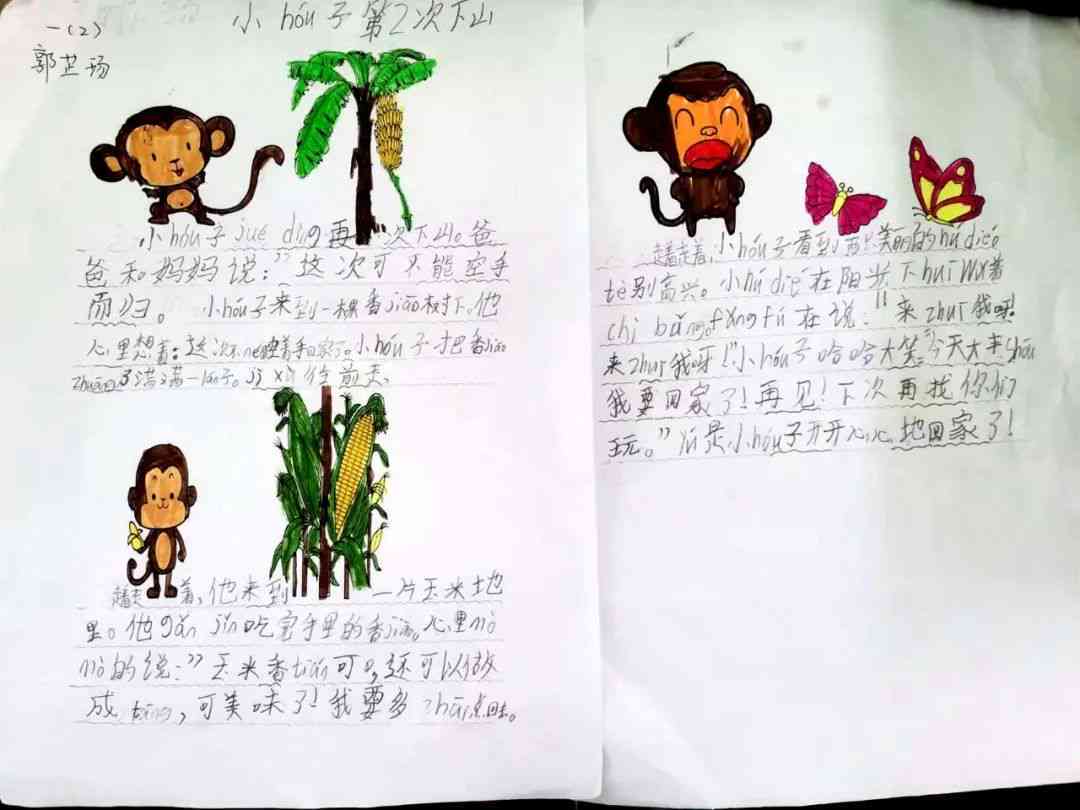 一(2)
小hóu子第2次下山
郭芷玚
小hóu子jué dìng再一次下山。爸
爸和妈妈说："这次可不能空手
而归。小hóu子来到一棵香jiāo树下。他
心里想着：这次不néng空着手回家了。小hóu子把香jiāo
zhuāng了满满一lán子。jì xù 往前走、
走着走着，他来到一片玉米地
里。他gǎn jǐn吃完手里的香jiāo。心里mò
mò的说："玉米香tián可口，还可以做
成tāng，可美味了！我要多zhāi点回去。
走着走着，小hóu子看到两只美丽的hú dié。
tè别高兴。小hú dié在阳光下huī wǔ着
chì bǎng。fǎng fú在说："来zhuī我呀!
来zhuī我呀！"小hóu子哈哈大笑："今天大丰shōu
我要回家了！再见！下次再找你们
玩。"Yú是小hóu子开开心心地回家了！